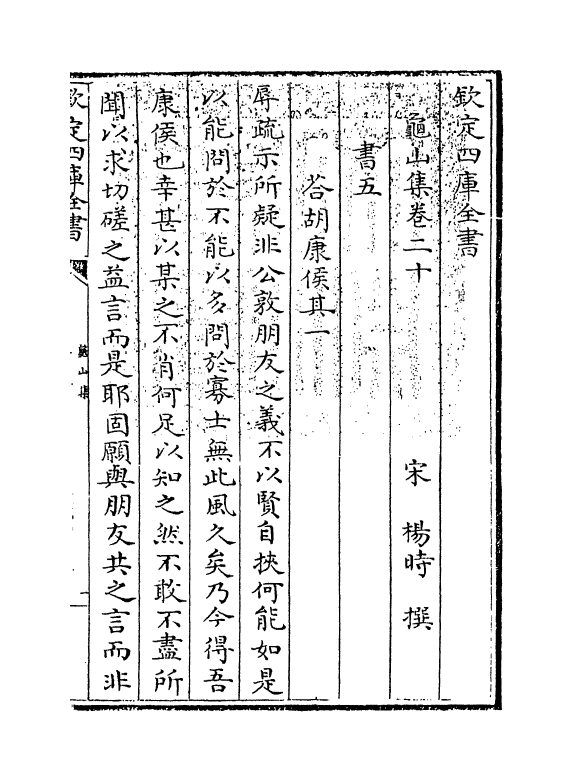 欽定四庫全書
龜山集卷二十
宋 楊時 撰
書五
荅胡康侯其一
辱疏示所疑非公敦朋友之義不以賢自挾何能如是
以能問於不能以多問於寡士無此風久矣乃今得吾
康侯也幸甚以某之不肖何足以知之然不敢不盡所
聞以求切磋之益言而是耶固願與朋友共之言而非
欽定四庫全書
龜山集
一